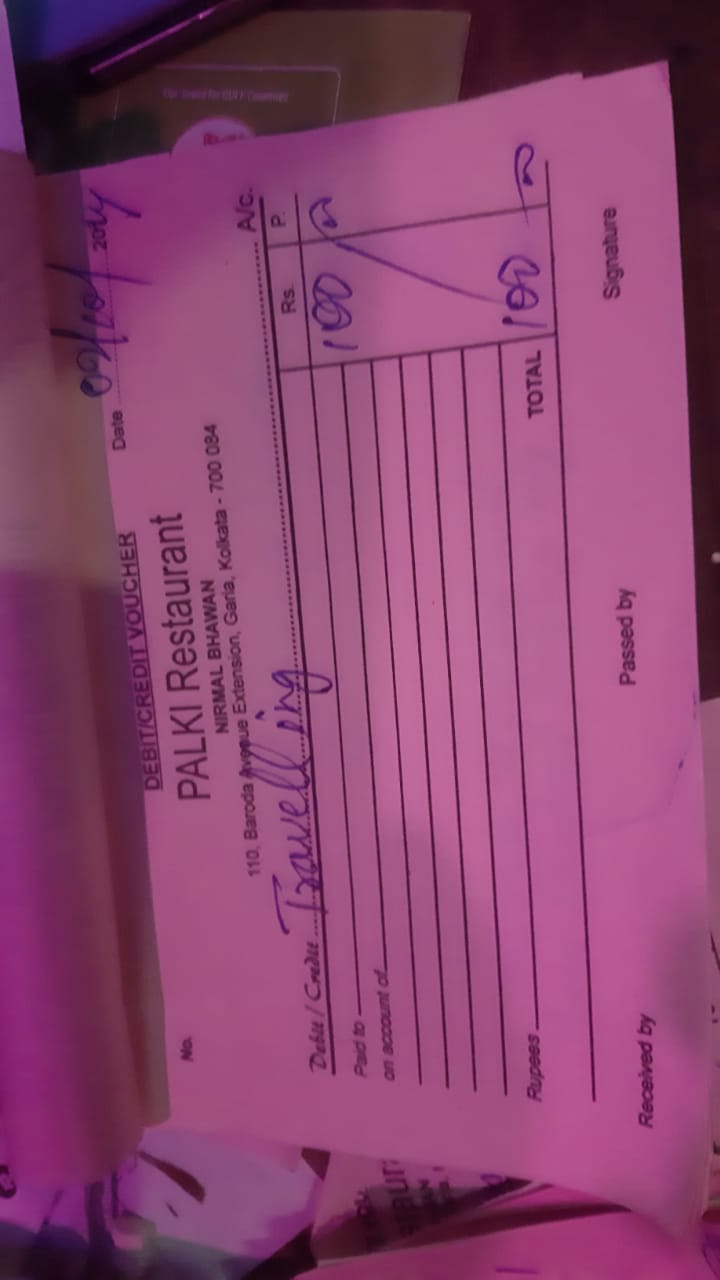 DEBIT/CREDIT VOUCHER
No.
Date 09/10/ 2024
PALKI Restaurant
NIRMAL BHAWAN
110, Baroda Avenue Extension, Garia, Kolkata - 700 084
Debit / Credit Travelling A/c.
Rs. P.
Paid to 100
on account of
Rupees TOTAL 100
Received by Passed by Signature